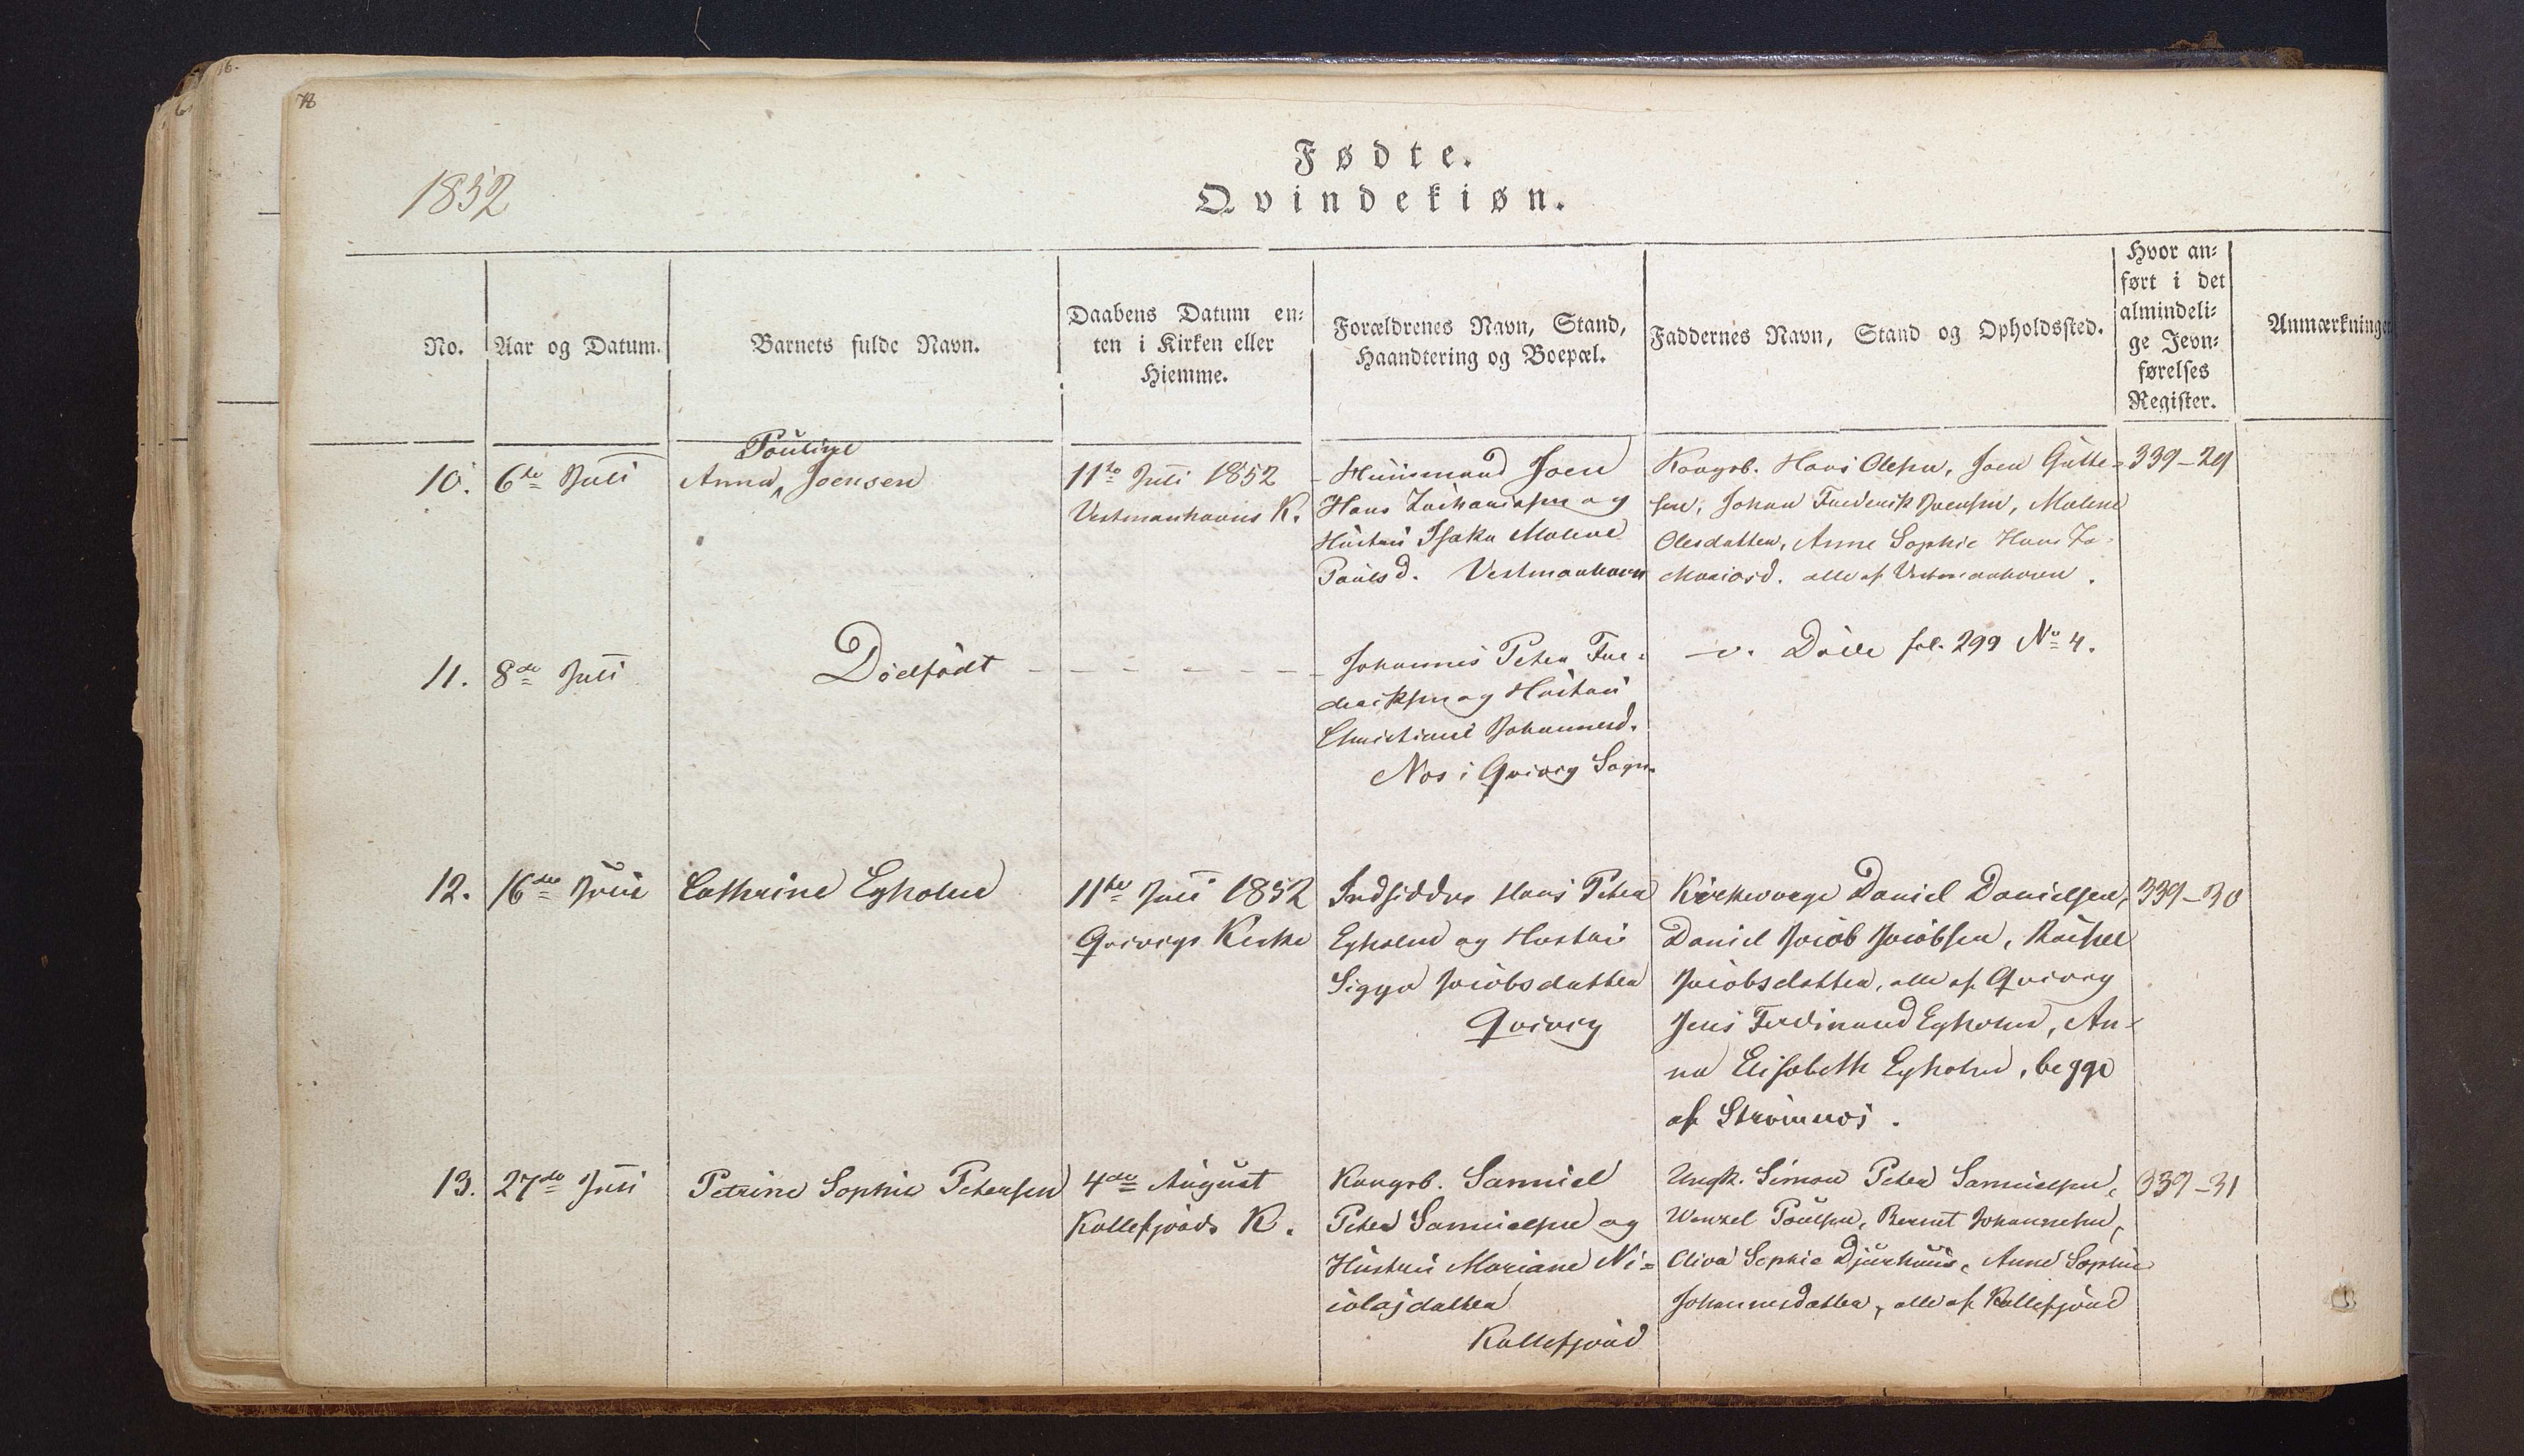 16.
78
1852
Fødte.
Qvindekiøn.
No.
Aar og Datum.
Barnets fulde Navn.
Daabens Datum en-
ten i Kirken eller
Hiemme.
Forældrenes Navn, Stand,
Haandtering og Boepæl.
Faddernes Navn, Stand og Opholdssted.
Hvor an-
ført i det
almindeli-
ge Jevn-
førelses
Register.
Anmærkninger
10. 6te Juli
Pouline
Anna Joensen
11te Juli 1852
Vestmanhavns K.
Huusmand Joen
Hans Zachariasen og
Hustru Isaka Malene
Poulsd. Vestmanhavn
Kongsb. Hans Olesen, Joen Gutte-
sen, Johan Frederik Joensen, Malene
Olesdatter, Anne Sophie Hans Za-
chariasd. alle af Vestmanhavn.
339-29
11. 8de Juli
Dödfödt
Johannes Peter Fre-
deriksen og Hustru
Christiane Johannesd.
Nos i Qvivig Sogn.
v. Döde fol. 299 No 4.
12. 16de Juni
Cathrine Egholm
11te Juli 1852
Qvivigs Kirke
Indsidder Hans Peter
Egholm og Hustru
Sigga Jacobsdatter
Qvivig
Kirkeværge Daniel Danielsen,
Daniel Jacob Jacobsen, Rachel
Jacobsdatter, alle af Qvivig
Jens Ferdinand Egholm, An-
na Elisabeth Egholm, begge
af Strömnæs.
339-30
13. 27de Juli
Petrine Sophie Petersen
4de August
Kollefjords K.
Kongsb. Samuel
Peter Samuelsen og
Hustru Mariane Ni-
colajdatter
Kollefjord
Ungk. Simon Peter Samuelsen,
Wenzel Poulsen, Berent Johannesen,
Oliva Sophie Djurhuus, Anne Sophie
Johannesdatter, alle af Kollefjord
339-31